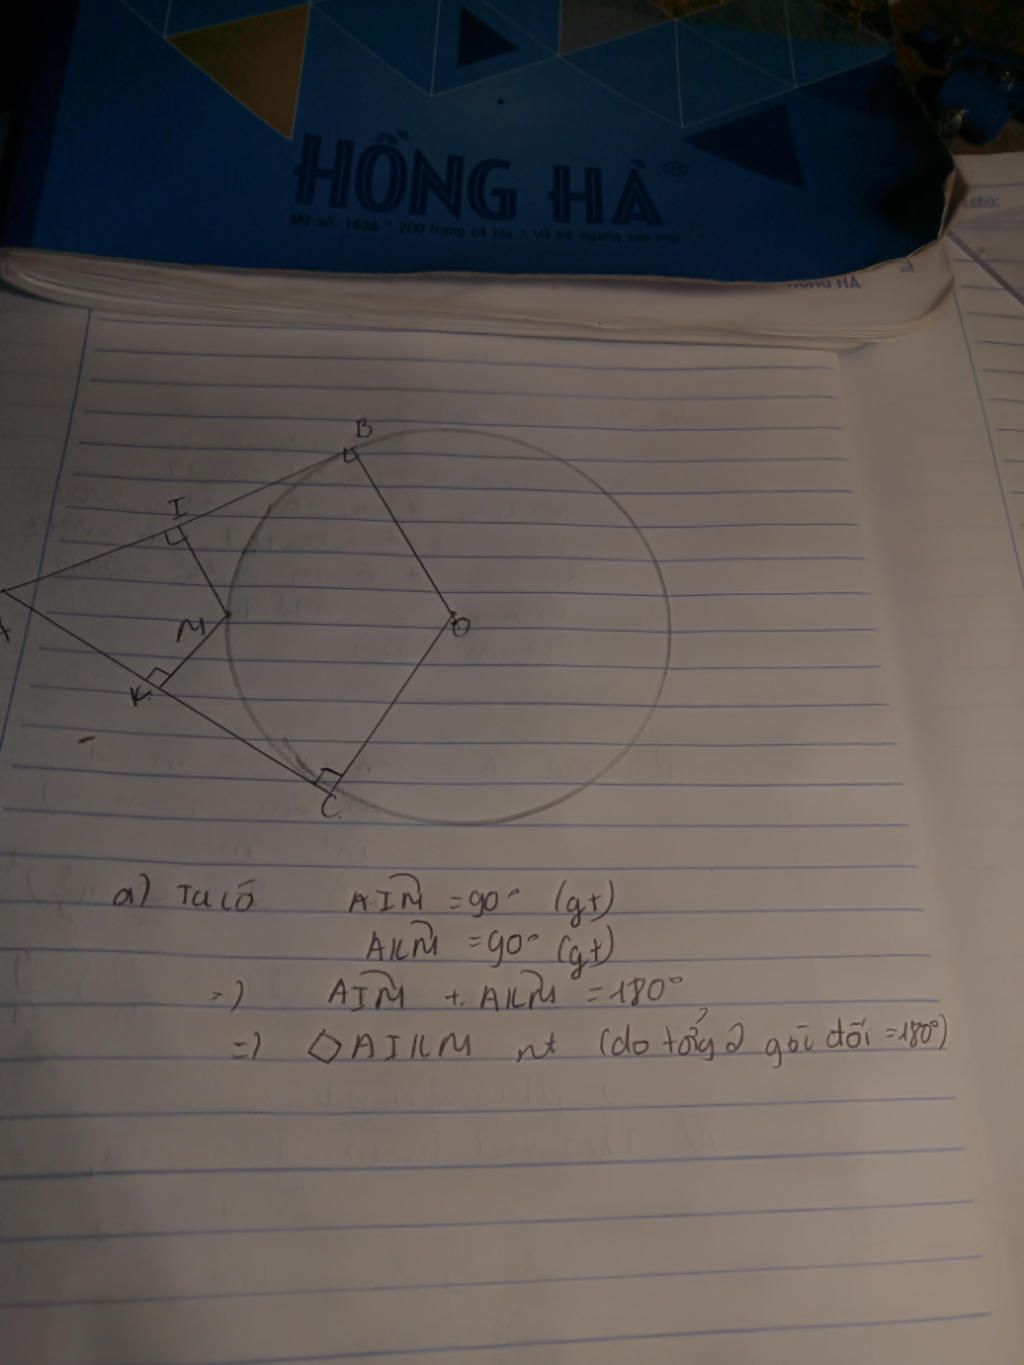 HỒNG HÀ®
Mã số: 1636 * 200 trang cả bìa * Vở kẻ ngang
chú:
HỒNG HÀ
B
I
A
M
O
K
C
a) Ta có AIM = 90° (gt)
AKM = 90° (gt)
=) AIM + AKM = 180°
=) ◇AIKM nt (do tổng 2 gói đối = 180°)